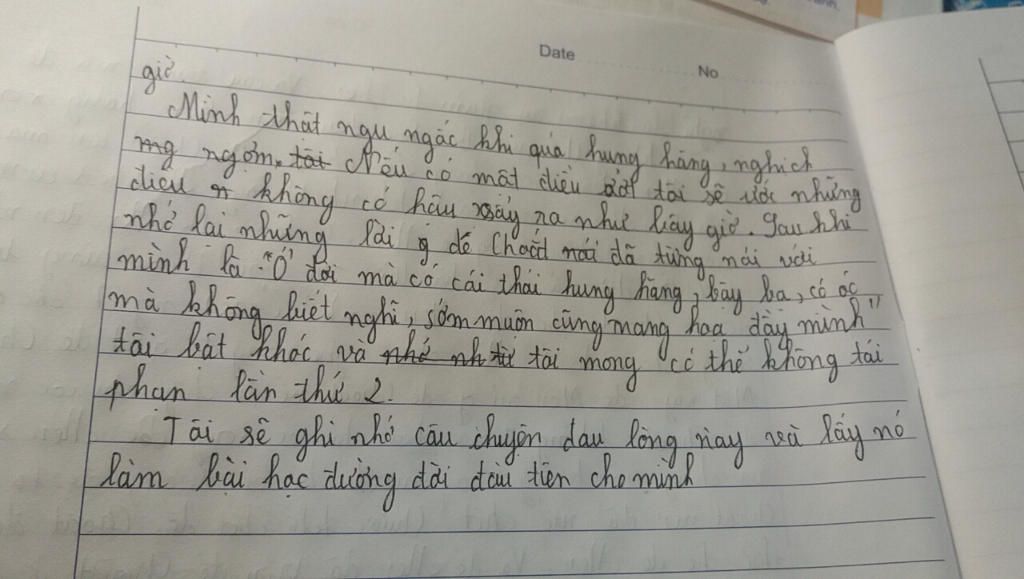 Date No
giờ.
Mình thật ngu ngốc khi quá hung hăng, nghịch
ngợm. tôi Nếu có một điều ước tôi sẽ ước những
điều không có hậu xảy ra như bây giờ. Sau khi
nhớ lại những lời dế Choắt nói đã từng nói với
mình là "Ở đời mà có cái thói hung hăng, bậy bạ, có óc
mà không biết nghĩ, sớm muộn cũng mang hoạ đấy mình"
tôi bật khóc và tôi mong có thể không tái
phạn lần thứ 2.
Tôi sẽ ghi nhớ câu chuyện đau lòng này và lấy nó
làm bài học đường đời đầu tiên cho mình